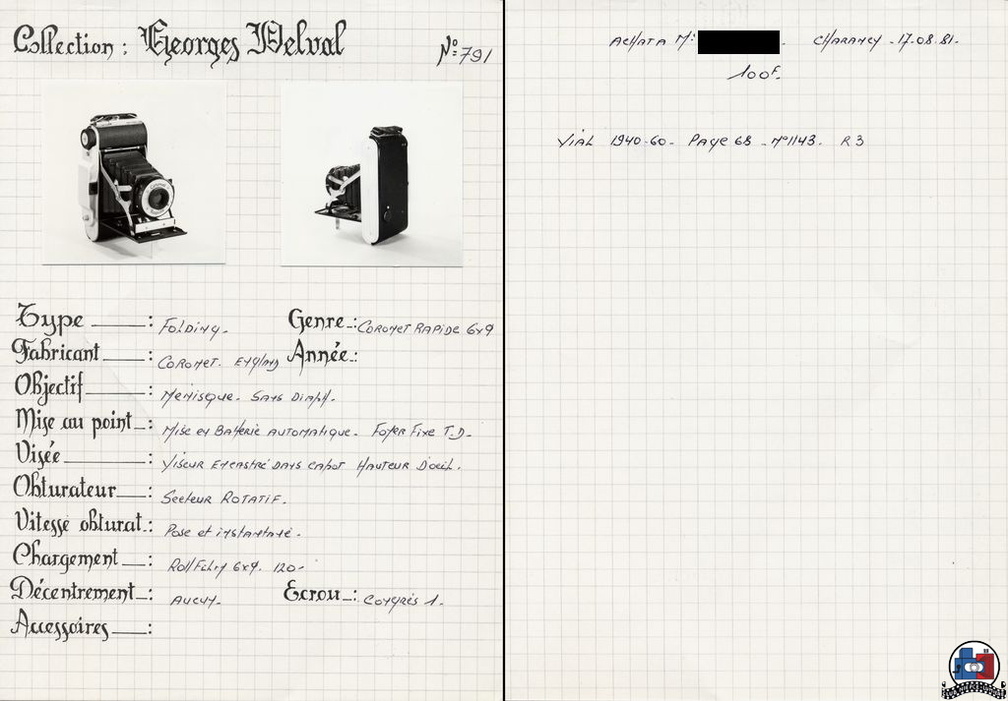 Collection : Georges Delval
N°: 791
Type : Folding.
Genre : Coronet Rapide 6x9
Fabricant : Coronet. England
Année :
Objectif : Menisque. Sans Diaph.
Mise au point : Mise en Batterie automatique. Foyer Fixe T.D.
Visée : Viseur Encastré dans capot Hauteur D'oeil.
Obturateur : Secteur Rotatif.
Vitesse obturat. : Pose et instantané.
Chargement : Roll Film 6x9. 120.
Décentrement : Aucun.
Ecrou : Congrès 1.
Accessoires :
Achat à Mr . Charancy . 17.08.81.
100F.
Vial 1940-60. Page 68 . n°1143. R3